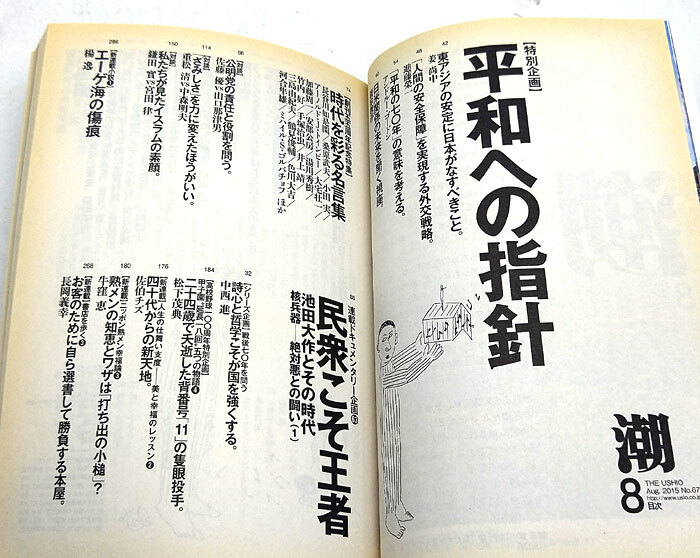 潮
8
THE USHIO
Aug. 2015 No.67
http://www.usio.co.jp
目次
【特別企画】
平和への指針
42
東アジアの安定に日本がなすべきこと。
姜 尚中
48
「人間の安全保障」を実現する外交戦略。
進藤榮一
54
「平和の七〇年」の意味を考える。
アンドルー・ゴードン
74
時代を彩る名言集
アーノルド・トインビー/大宅壮一/
竹内 好/手塚治虫/井上 靖/
三島由紀夫/鶴見俊輔/色川大吉/
河合隼雄/ミハイル・S・ゴルバチョフ ほか
66
【対談】
公明党の責任と役割を問う。
佐藤 優vs山口那津男
114
【対談】
「さみしさ」を力に変えたほうがいい。
重松 清vs中森明夫
150
【対談】
私たちが見たイスラムの素顔。
鎌田 實vs宮田 律
286
【新連載小説】
エーゲ海の傷痕
楊 逸
88
連載ドキュメンタリー企画⑨
民衆こそ王者
池田大作とその時代
核兵器――絶対悪との闘い(1)
32
【シリーズ企画】戦後七〇年を問う
詩心と哲学こそが国を強くする。
中西 進
184
【高校野球一〇〇周年特別企画】
甲子園「延長一八回・一五回」の物語④
二十四歳で夭逝した背番号「11」の隻眼投手。
松下茂典
176
【新連載】人生の仕舞い支度――美と幸福のレッスン②
四十代からの新天地。
佐伯チズ
180
【新連載】ニッポン熟メン幸福論③
熟メンの知恵とワザは「打ち出の小槌」?
牛窪 恵
268
【新連載】書店を歩く③
お客のために自ら選書して勝負する本屋。
長岡義幸